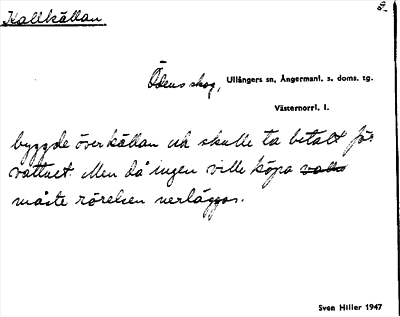 Kallkällan.
Ödens skog, Ullångers sn, Ångermanl. s. doms. tg.
Västernorrl. l.
byggde över källan och skulle ta betalt för
vattnet. Men då ingen ville köpa
måste rörelsen nerläggas.
Sven Hiller 1947